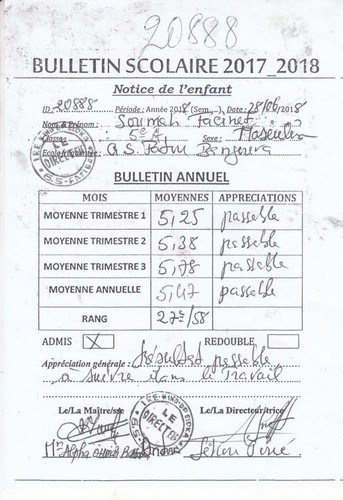 20888
BULLETIN SCOLAIRE 2017_2018
Notice de l'enfant
ID: 20888 Période: Année 2018 (Sem ) Date: 28/06/2018
Nom & Prénom: Soumah Facinet
Classe: 5e A Sexe: Masculin
Ecole G.S.
LE DIRECTEUR
BULLETIN ANNUEL
MOIS MOYENNES APPRECIATIONS
MOYENNE TRIMESTRE 1 5,25 passable
MOYENNE TRIMESTRE 2 5,38 passable
MOYENNE TRIMESTRE 3 5,78 passable
MOYENNE ANNUELLE 5,47 passable
RANG 27e/58
ADMIS X REDOUBLE
Appréciation générale: Résultat passable
à suivre dans le travail
Le/La Maître/sse Le/La Directeur/trice
LE DIRECTEUR
Mr Alpha